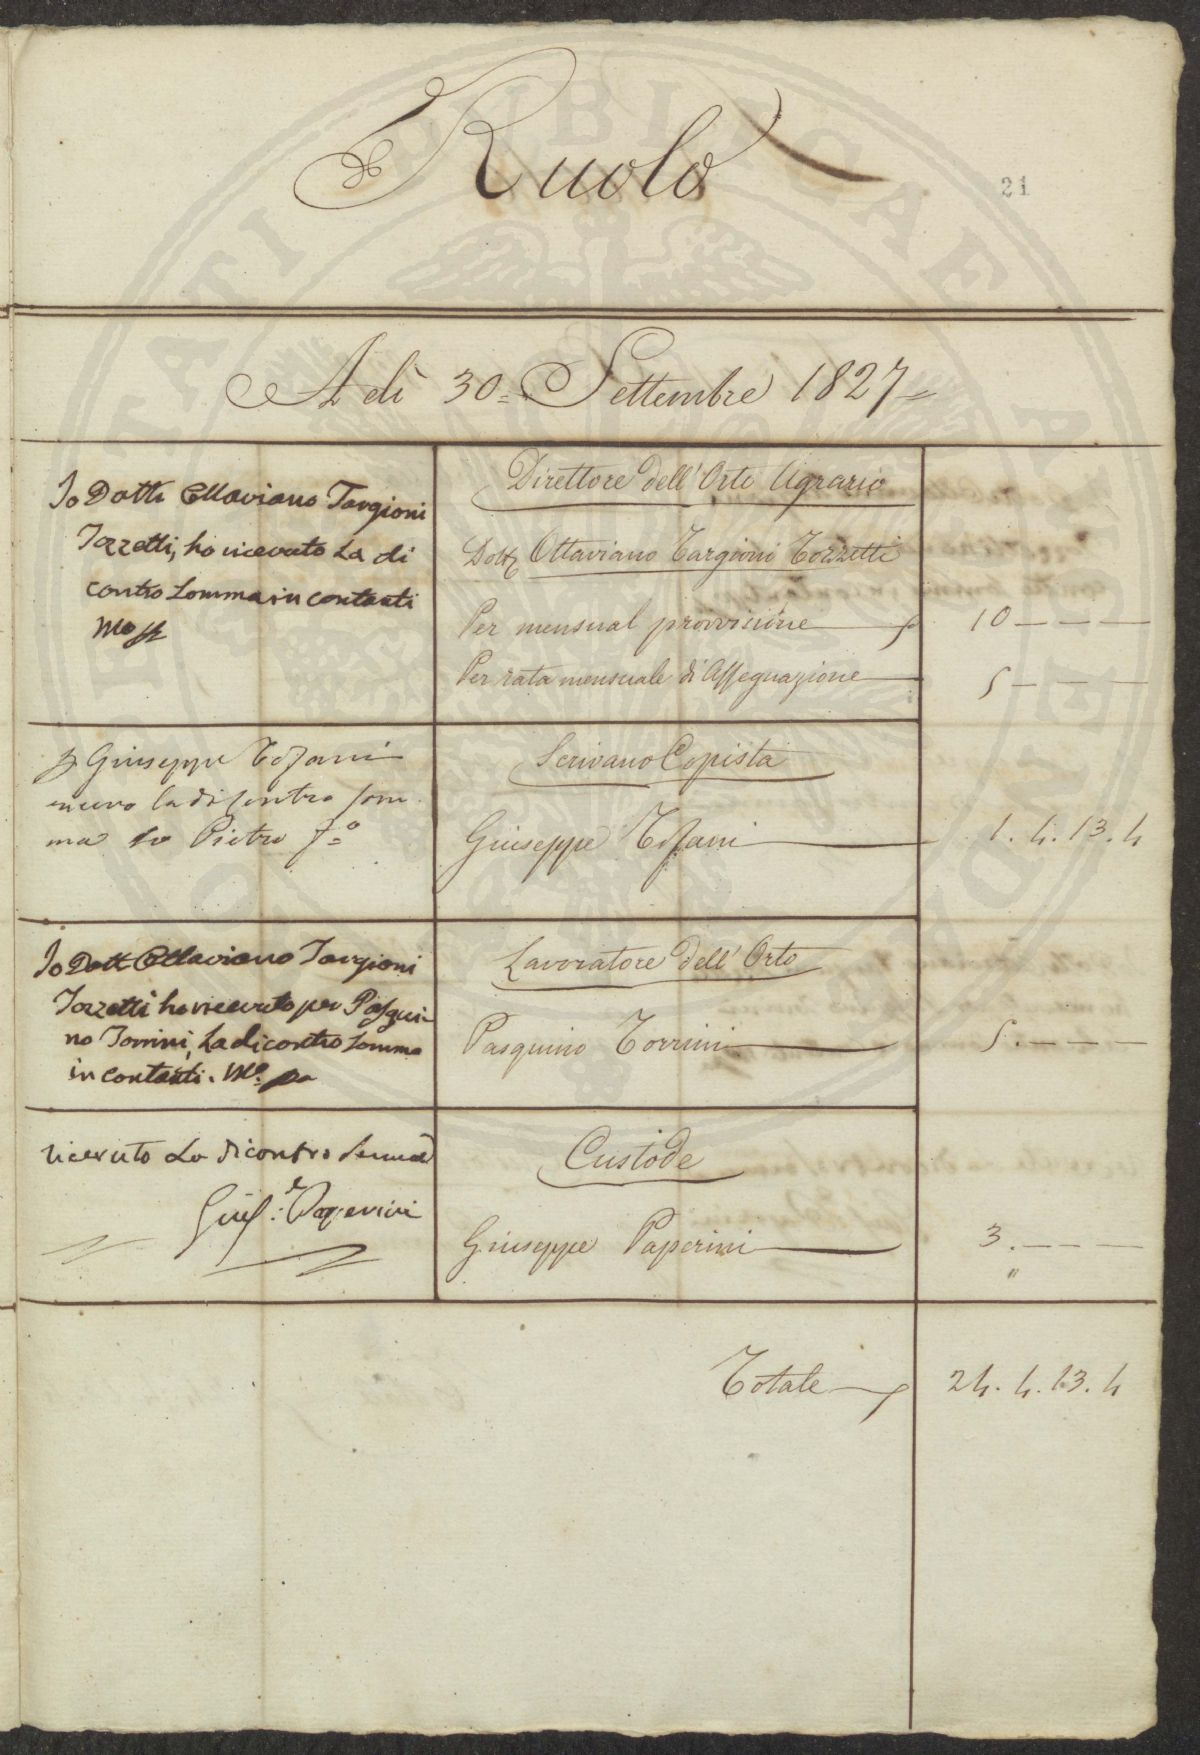 Ruolo
21
Adì 30= Settembre 1827=
Io Dott Ottaviano Targioni
Tozzetti, ho ricevuto La di
contro Somma in contanti
Direttore dell'Orto Agrario
Dott Ottaviano Targioni Tozzetti
Per mensual provvisione 10 — — —
Per rata mensuale di Assegnazione 5 — — —
Giuseppe Tofani
la di contro som
ma Pietro
Scrivano Copista
Giuseppe Tofani 1. 4. 13. 4
Io Dott Ottaviano Targioni
Tozzetti ho ricevuto per Pasqui
no Torrini, La di contro Somma
in contanti. Mo. pa
Lavoratore dell'Orto
Pasquino Torrini 5. — — —
ricevuto La di contro Somma
Giuse: Paperini
Custode
Giuseppe Paperini 3. — — —
"
Totale 24. 4. 13. 4